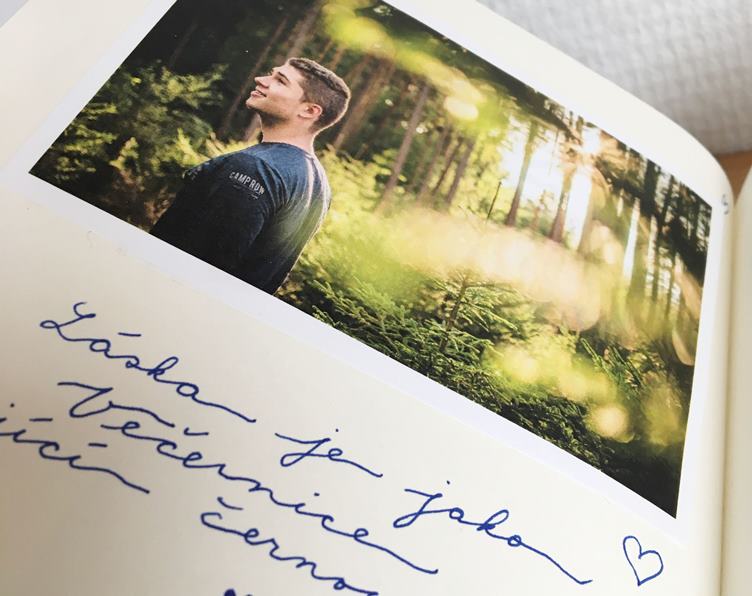 CAMPROW
Láska je jako
večernice
jící černo